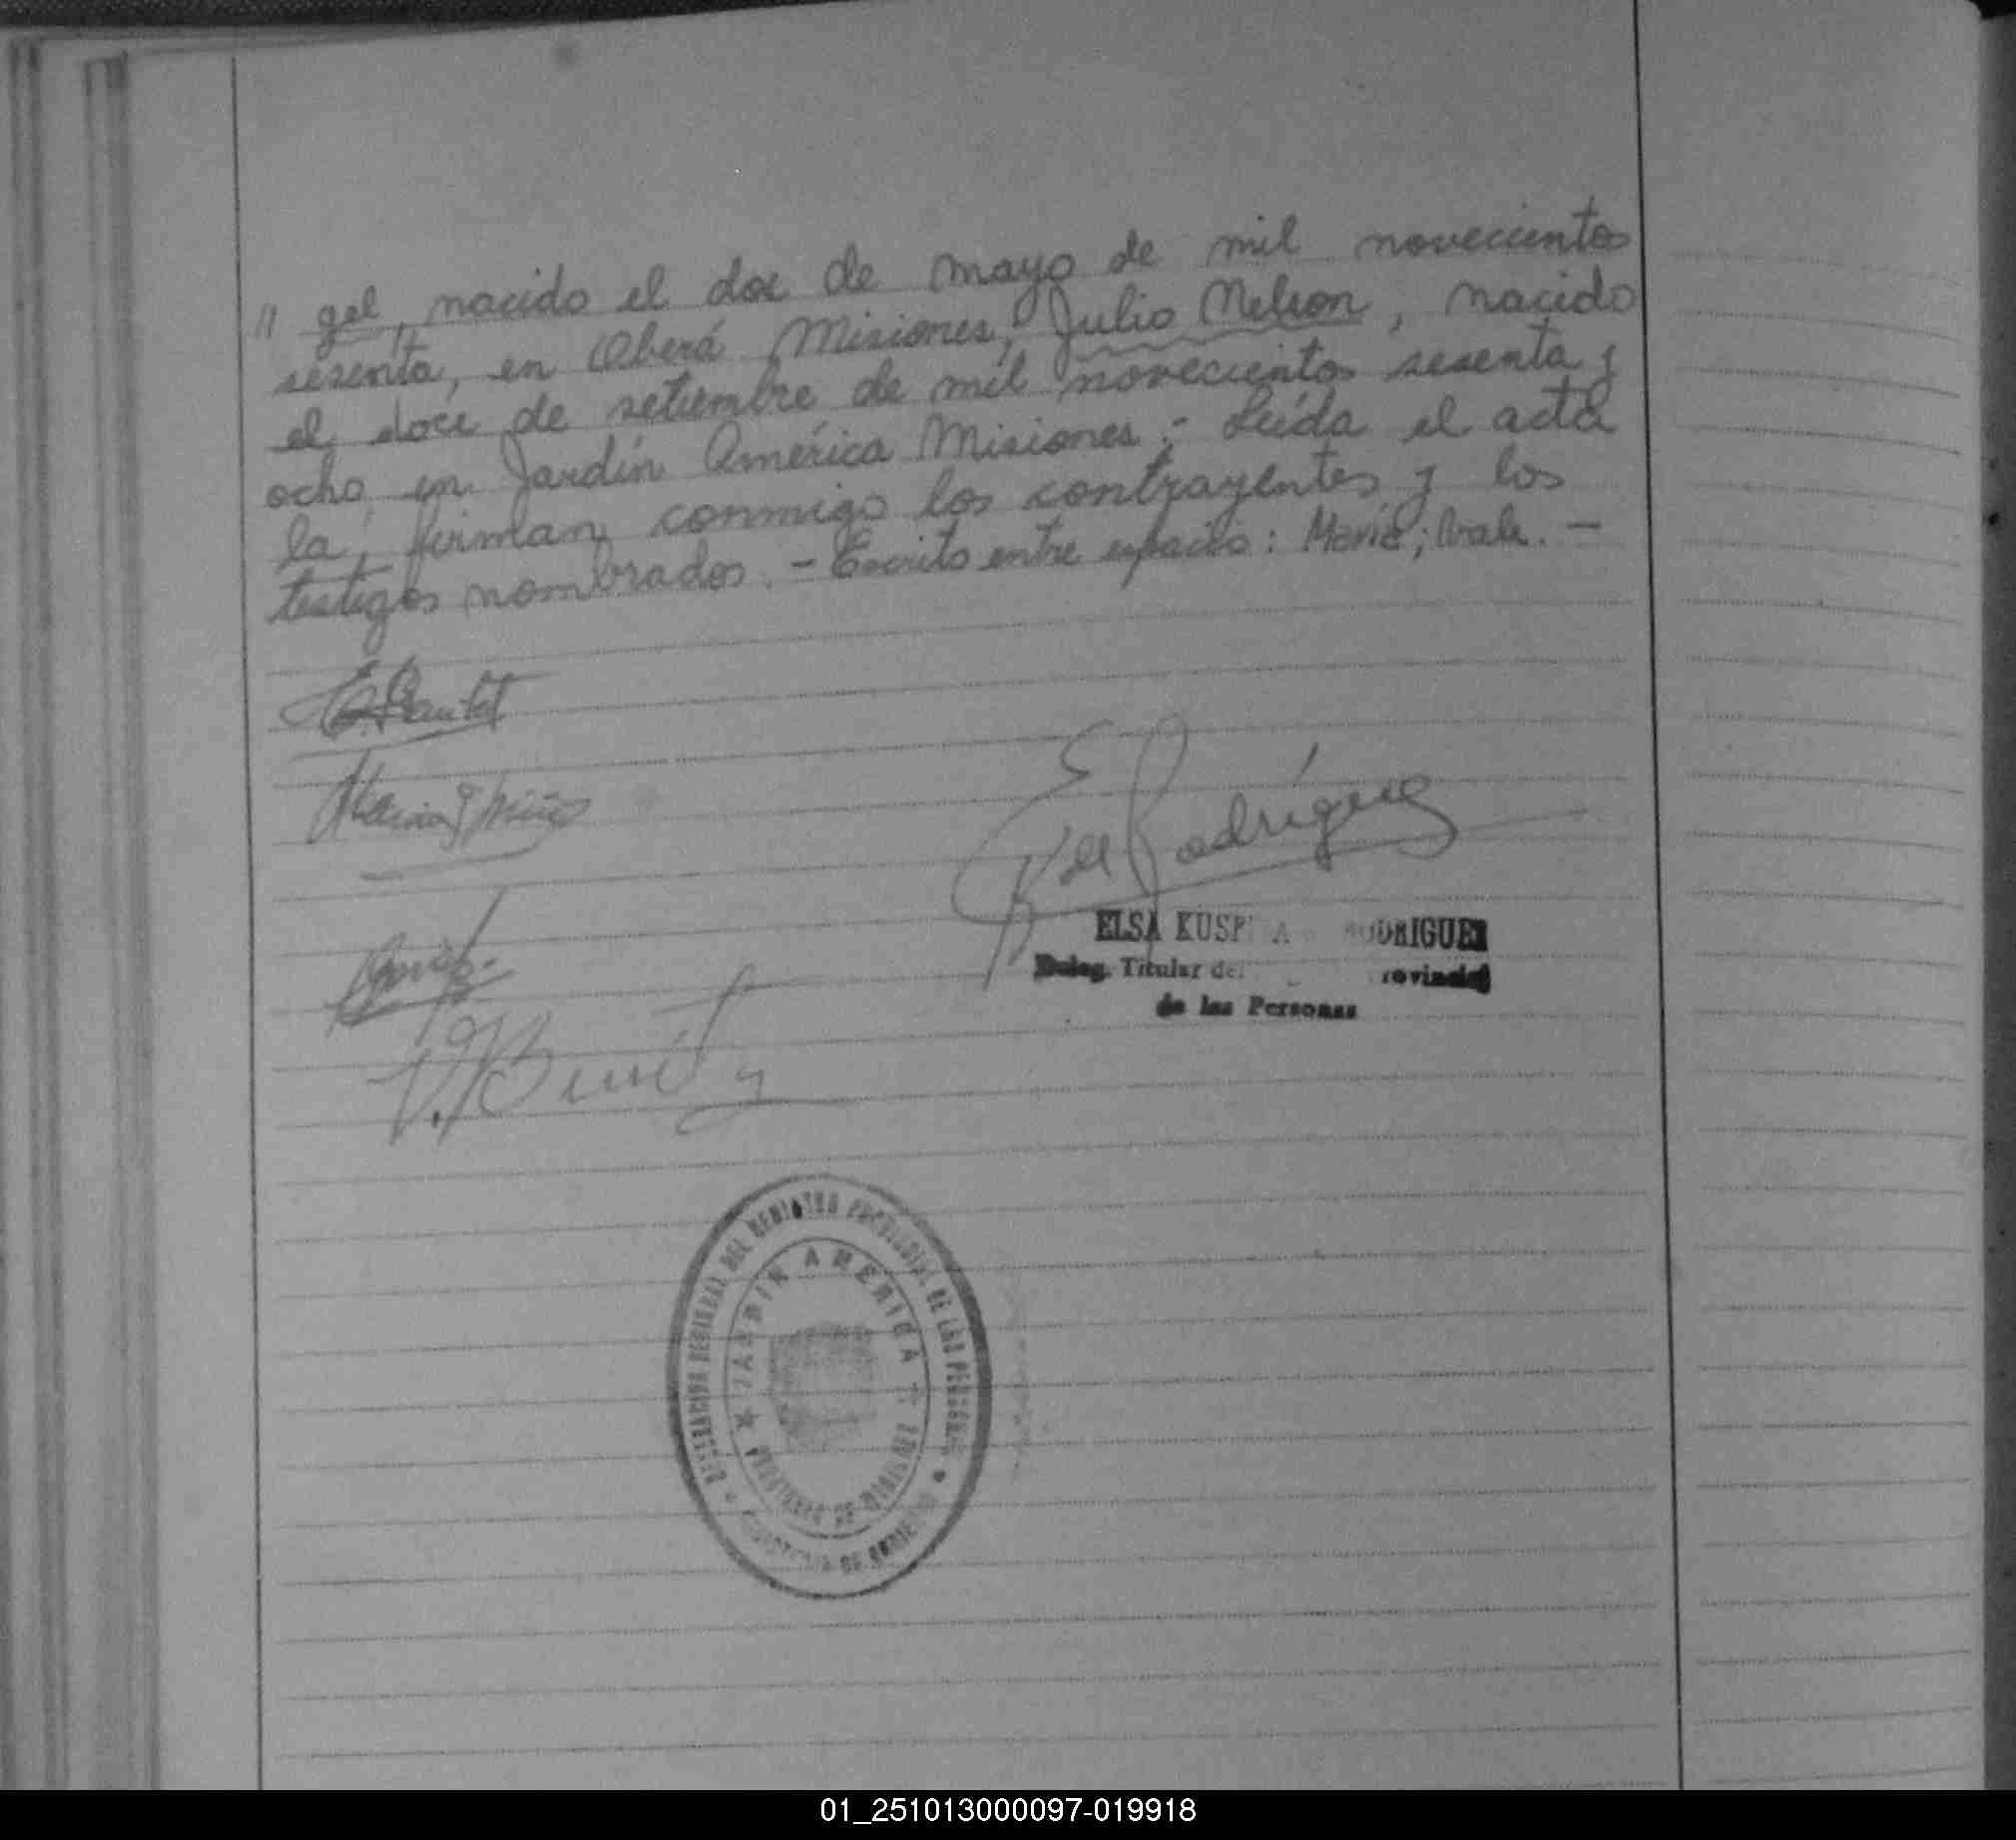 // gel, nacido el dos de mayo de mil novecientos
sesenta, en Oberá Misiones, Julio Nelson, nacido
el doce de setiembre de mil novecientos sesenta y
ocho, en Jardín América Misiones.- Leída el acta
la, firman conmigo los contrayentes y los
testigos nombrados. - Escrito entre espacio: María; Vale. -
E de Rodríguez
ELSA KUSP A RODRIGUEZ
Deleg. Titular del rovincial
de las Personas
V. Benít
DELEGACION REGIONAL DEL REGISTRO PROVINCIAL DE LAS PERSONAS
JARDIN AMERICA
PROVINCIA DE MISIONES
MINISTERIO DE GOBIERNO
01_251013000097-019918